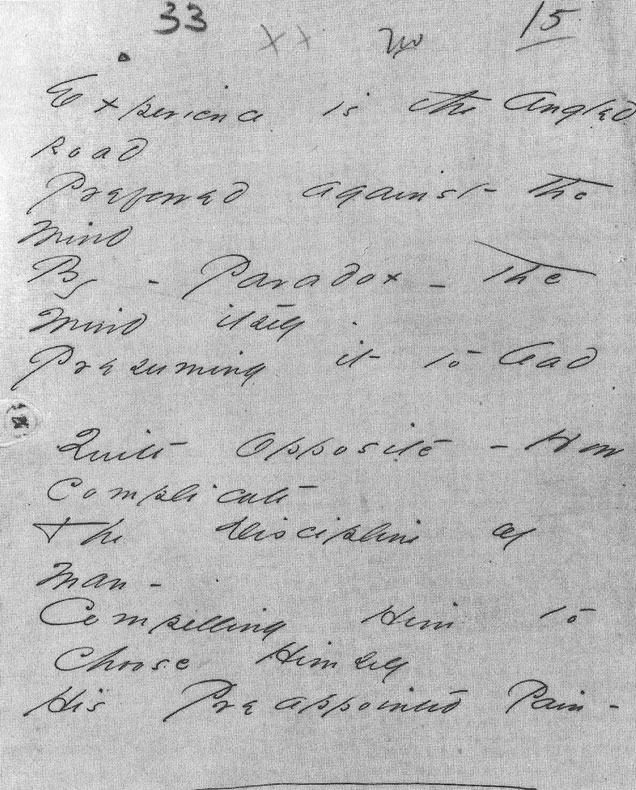 33 XX 15
Experience is the Angled
Road
Preferred against the
Mind
By - Paradox - The
Mind itself -
Presuming it to lead

Quite Opposite - How
Complicate
The Discipline of
Man -
Compelling Him to
Choose Himself
His Preappointed Pain -